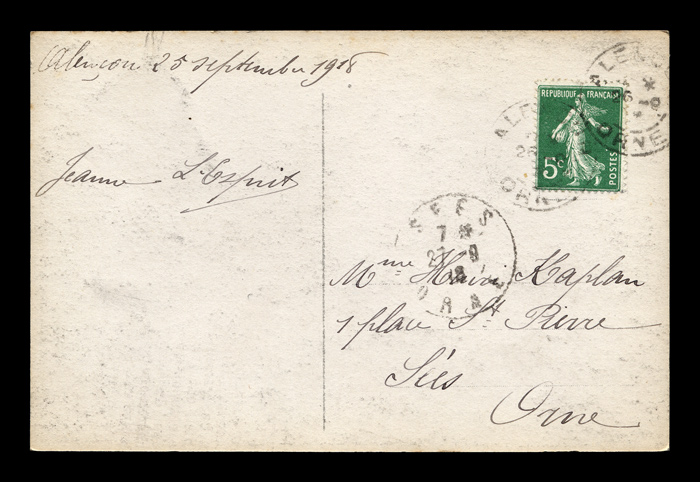 Alençon 25 septembre 1918
Jeanne L'Esprit
REPUBLIQUE FRANÇAISE
5c
POSTES
ALENÇ
26
ORNE
ALE
26
ORN
SEES
7 *
27 -9
18
ORNE
Mme Henri Kaplan
1 place St Pierre
Séés
Orne